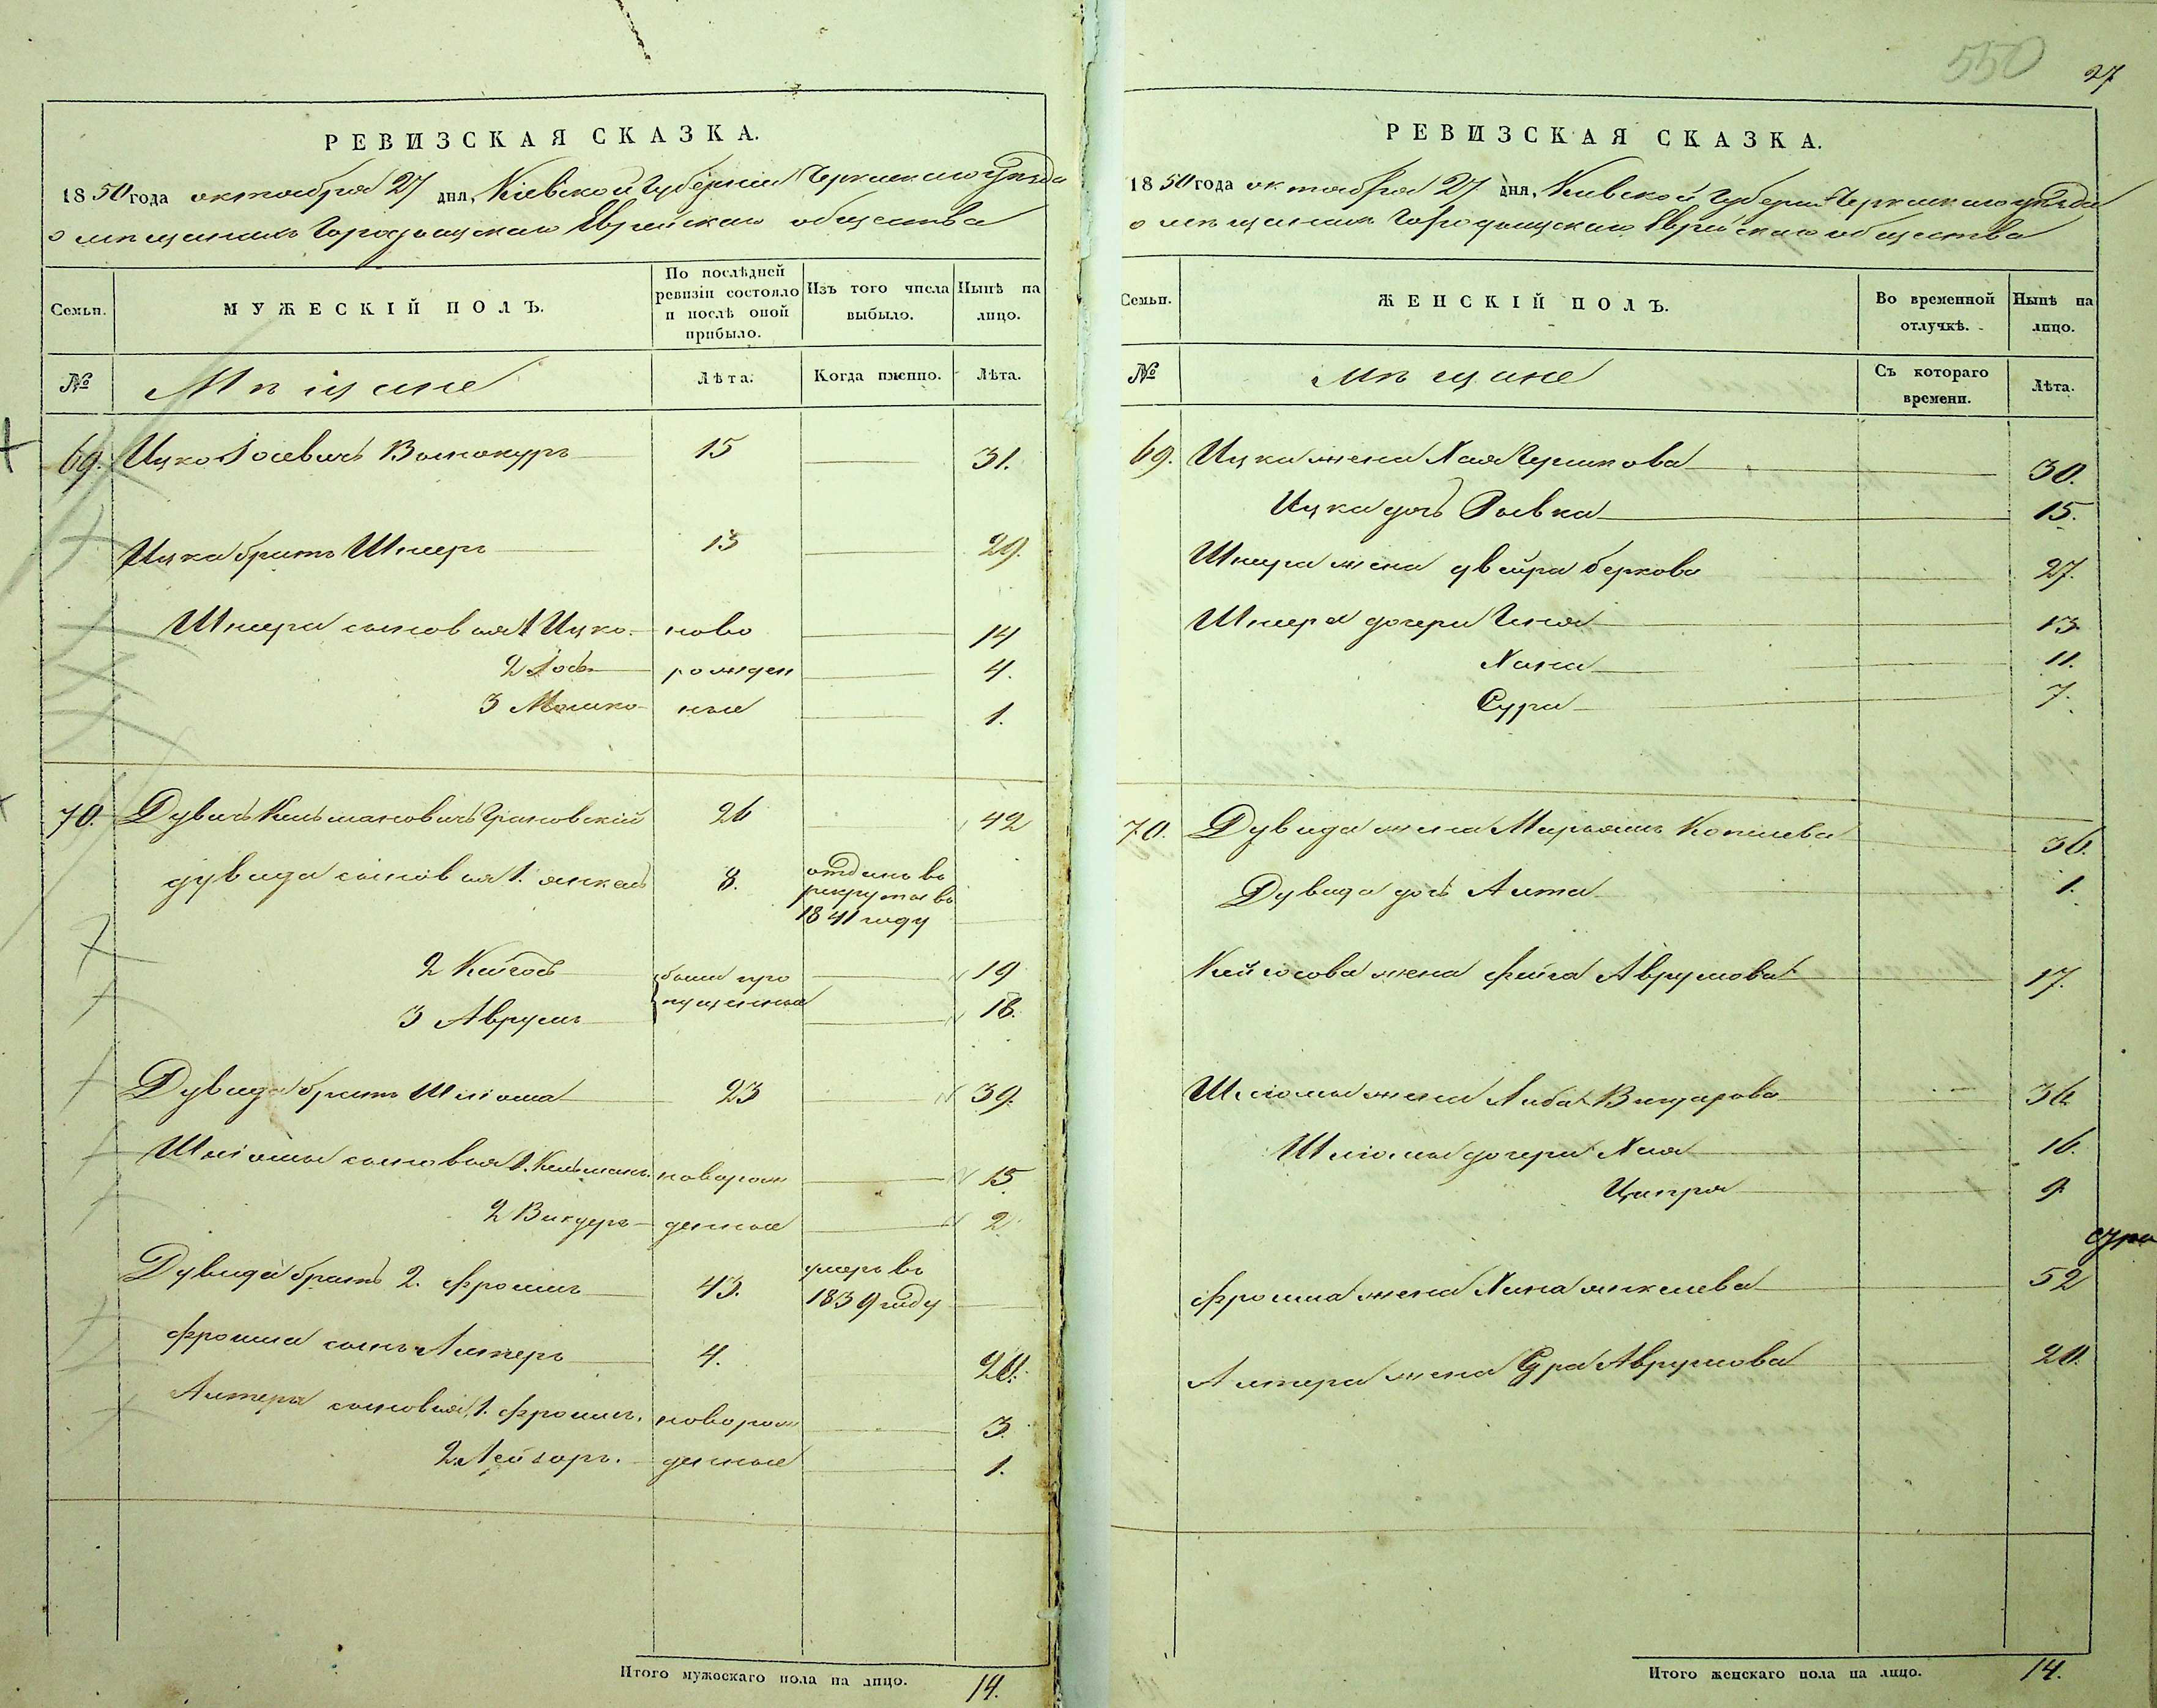 550
27
РЕВИЗСКАЯ СКАЗКА.
1850 года октября 27 дня, Кіевской Губерніи Черкаскаго уѣзда
о мѣщанахъ Городищскаго Еврейскаго общества
Семьи.
МУЖЕСКІЙ ПОЛЪ.
По послѣдней ревизіи состояло и послѣ оной прибыло.
Изъ того числа выбыло.
Нынѣ на лицо.
№
Мѣщане
Лѣта.
Когда имянно.
Лѣта.
69. Ицко Іосевичъ Винокуръ 15 31.
Ицка братъ Шмеръ 13 29.
Шмера сыновья 1 Ицко ново 14
2 Іось рожден 4.
3 Мошко ные 1.
70. Дувидъ Кельмановичъ Грановскій 26 42
Дувида сыновья 1. Янкель 8. отданъ въ
рекруты въ
1841 году
2 Кейлосъ были про 19
3 Аврумъ пущенные 18.
Дувида братъ Шліома 23 39.
Шліомы сыновья 1. Кельманъ новорож 15.
2 Вигдеръ денные 2
Дувида братъ 2. Фроимъ 43. умеръ въ
1839 году
Фроима сынъ Алтеръ 4. 20.
Алтера сыновья 1. Фроимъ новорож 3.
2 Лейзоръ. денные 1.
Итого мужескаго пола на лицо. 14.
РЕВИЗСКАЯ СКАЗКА.
1850 года октября 27 дня, Кіевской Губерніи Черкаскаго уѣзда
о мѣщанахъ Городищскаго Еврейскаго общества
Семьи.
ЖЕНСКІЙ ПОЛЪ.
Во временной отлучкѣ.
Нынѣ на лицо.
№
Мѣщане
Съ котораго времени.
Лѣта.
69. Ицка жена Хая 30.
Ицка дочь Ривка 15.
Шмера жена Двейра Беркова 27.
Шмера дочери Геня 13.
Хана 11.
Сура 7.
70. Дувида жена Марьямъ Копелева 36.
Дувида дочь Алта 1.
жена Фейга Аврумова 17.
Шліомы жена Либа Вигдорова 36
Шліомы дочери Хая 16.
Ципра 9
Фроима жена Хана Янкелева 52
Алтера жена Сура Аврумова 20.
Сура
Итого женскаго пола на лицо. 14.